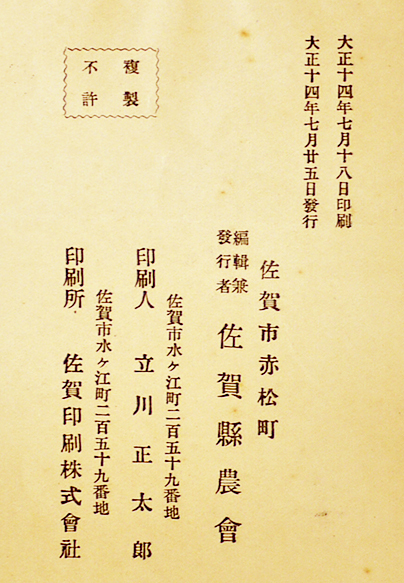 大正十四年七月十八日印刷
大正十四年七月廿五日發行
佐賀市赤松町
編輯兼
發行者
佐賀縣農會
佐賀市水ヶ江町二百五十九番地
印刷人 立川正太郎
佐賀市水ヶ江町二百五十九番地
印刷所 佐賀印刷株式會社
複製
不許